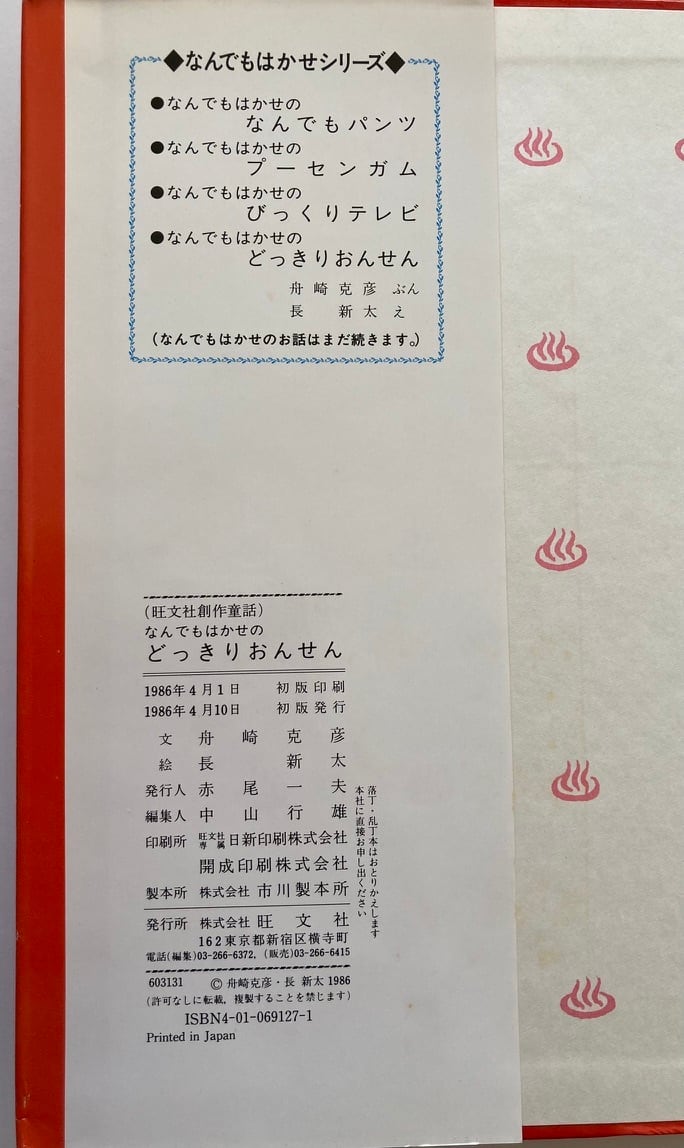 ◆なんでもはかせシリーズ◆
●なんでもはかせの
なんでもパンツ
●なんでもはかせの
プーセンガム
●なんでもはかせの
びっくりテレビ
●なんでもはかせの
どっきりおんせん
舟崎克彦 ぶん
長 新太 え
(なんでもはかせのお話はまだ続きます。)
(旺文社創作童話)
なんでもはかせの
どっきりおんせん
1986年4月1日 初版印刷
1986年4月10日 初版発行
文 舟崎克彦
絵 長 新太
発行人 赤尾一夫
編集人 中山行雄
印刷所 旺文社専属 日新印刷株式会社
開成印刷株式会社
製本所 株式会社 市川製本所
落丁・乱丁本はおとりかえします
本社に直接お申し出ください
発行所 株式会社 旺文社
162東京都新宿区横寺町
電話(編集)03-266-6372, (販売)03-266-6415
603131 © 舟崎克彦・長 新太 1986
(許可なしに転載, 複製することを禁じます)
ISBN4-01-069127-1
Printed in Japan